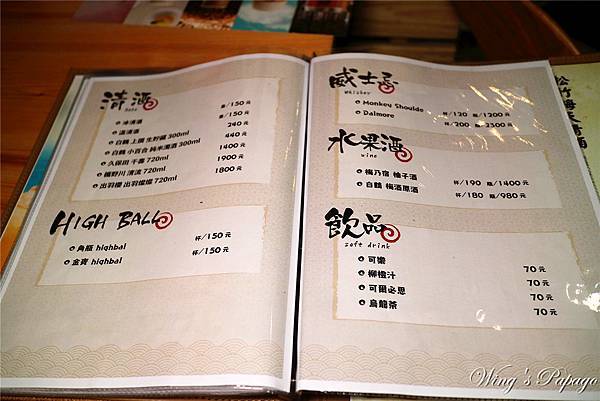 清酒
Sake
冰清酒 壺/150元
溫清酒 壺/150元
白鶴 上撰 生貯藏 300ml 240元
白鶴 小百合 純米濁酒 300ml 440元
久保田 千壽 720ml 1400元
楯野川 清流 720ml 1900元
出羽櫻 出羽燦燦 720ml 1800元
HIGH BALL
角瓶 highbal 杯/150元
金賓 highbal 杯/150元
威士忌
Whiskey
Monkey Shoulde 杯/120 瓶/1200元
Dalmore 杯/200 瓶/2300元
水果酒
wine
梅乃宿 柚子酒 杯/190 瓶/1400元
白鶴 梅酒原酒 杯/180 瓶/980元
飲品
soft drink
可樂 70元
柳橙汁 70元
可爾必思 70元
烏龍茶 70元
松竹梅天
Wing's Papago